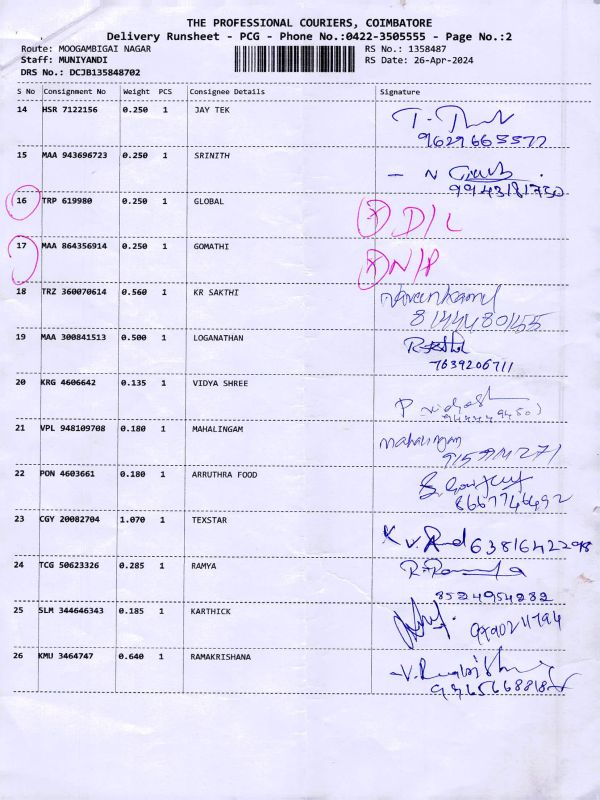 THE PROFESSIONAL COURIERS, COIMBATORE
Delivery Runsheet - PCG - Phone No.:0422-3505555 - Page No.:2
Route: MOOGAMBIGAI NAGAR RS No.: 1358487
Staff: MUNIYANDI RS Date: 26-Apr-2024
DRS No.: DCJB135848702
S No Consignment No Weight PCS Consignee Details Signature
14 HSR 7122156 0.250 1 JAY TEK
15 MAA 943696723 0.250 1 SRINITH
9943181750
16 TRP 619980 0.250 1 GLOBAL D/L
17 MAA 864356914 0.250 1 GOMATHI N/P
18 TRZ 360070614 0.560 1 KR SAKTHI
19 MAA 300841513 0.500 1 LOGANATHAN
7639206711
20 KRG 4606642 0.135 1 VIDYA SHREE
21 VPL 948109708 0.180 1 MAHALINGAM mahalingam
22 PON 4603661 0.180 1 ARRUTHRA FOOD
8667746492
23 CGY 20082704 1.070 1 TEXSTAR
24 TCG 50623326 0.285 1 RAMYA
25 SLM 344646343 0.185 1 KARTHICK
26 KMU 3464747 0.640 1 RAMAKRISHANA